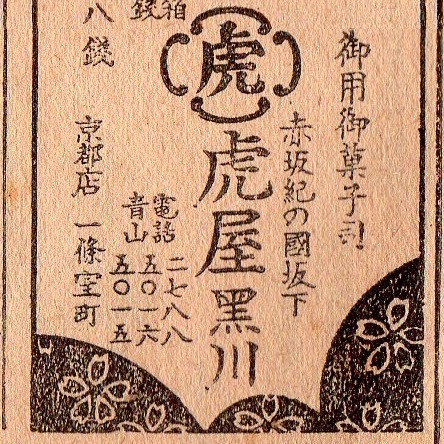 御用御菓子司
赤坂紀の國坂下
虎
虎屋黒川
電話青山
二七八八
五〇一六
五〇一五
箱
錢
八錢
京都店 一條室町